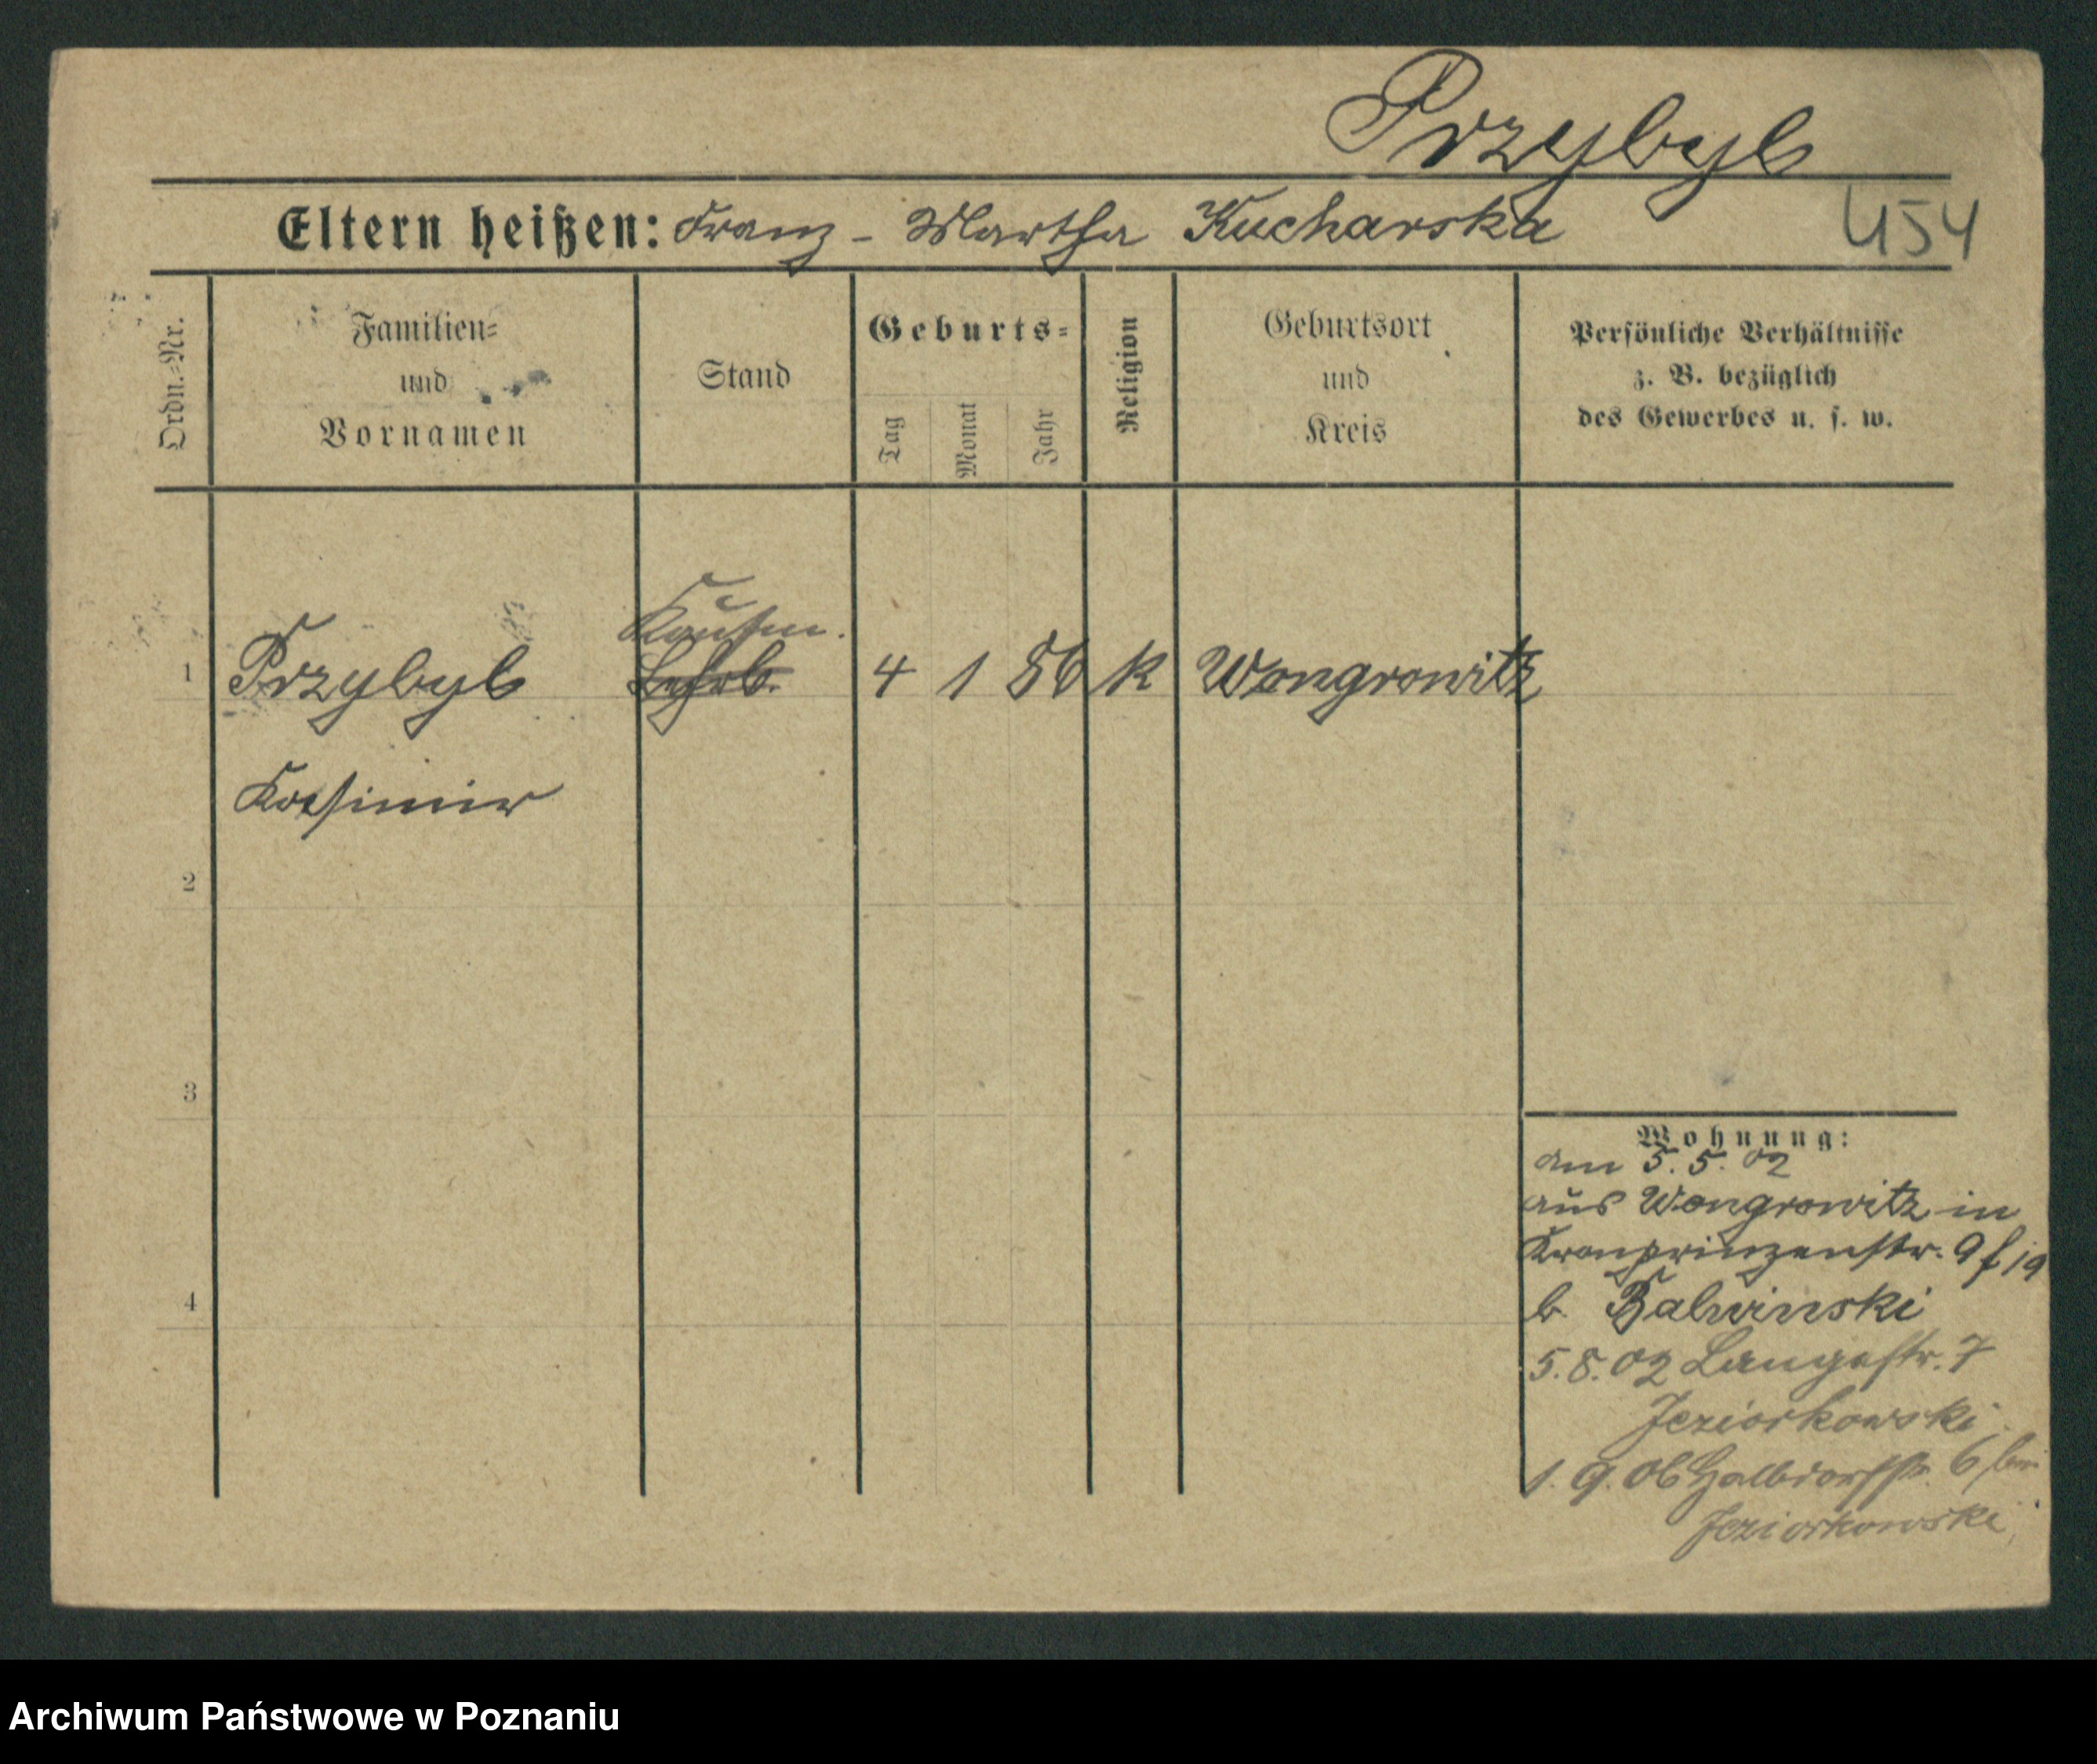 Przybyl
Eltern heißen: Franz - Martha Kucharska
454
Ordn.-Nr.
Familien-
und
Vornamen
Stand
Geburts-
Tag
Monat
Jahr
Religion
Geburtsort
und
Kreis
Persönliche Verhältnisse
z. B. bezüglich
des Gewerbes u. s. w.
Kaufm.
1 Przybyl Lehrl. 4 1 86 k Wongrowitz
Kasimir
2
3
4
Wohnung:
am 5. 5. 02
aus Wongrowitz in
Kronprinzenstr. 9
b. Balwinski
5. 8. 02 Langestr. 7
Jeziorkowski
1. 9. 06 Halbdorfstr. 6 bei
Jeziorkowski
Archiwum Państwowe w Poznaniu